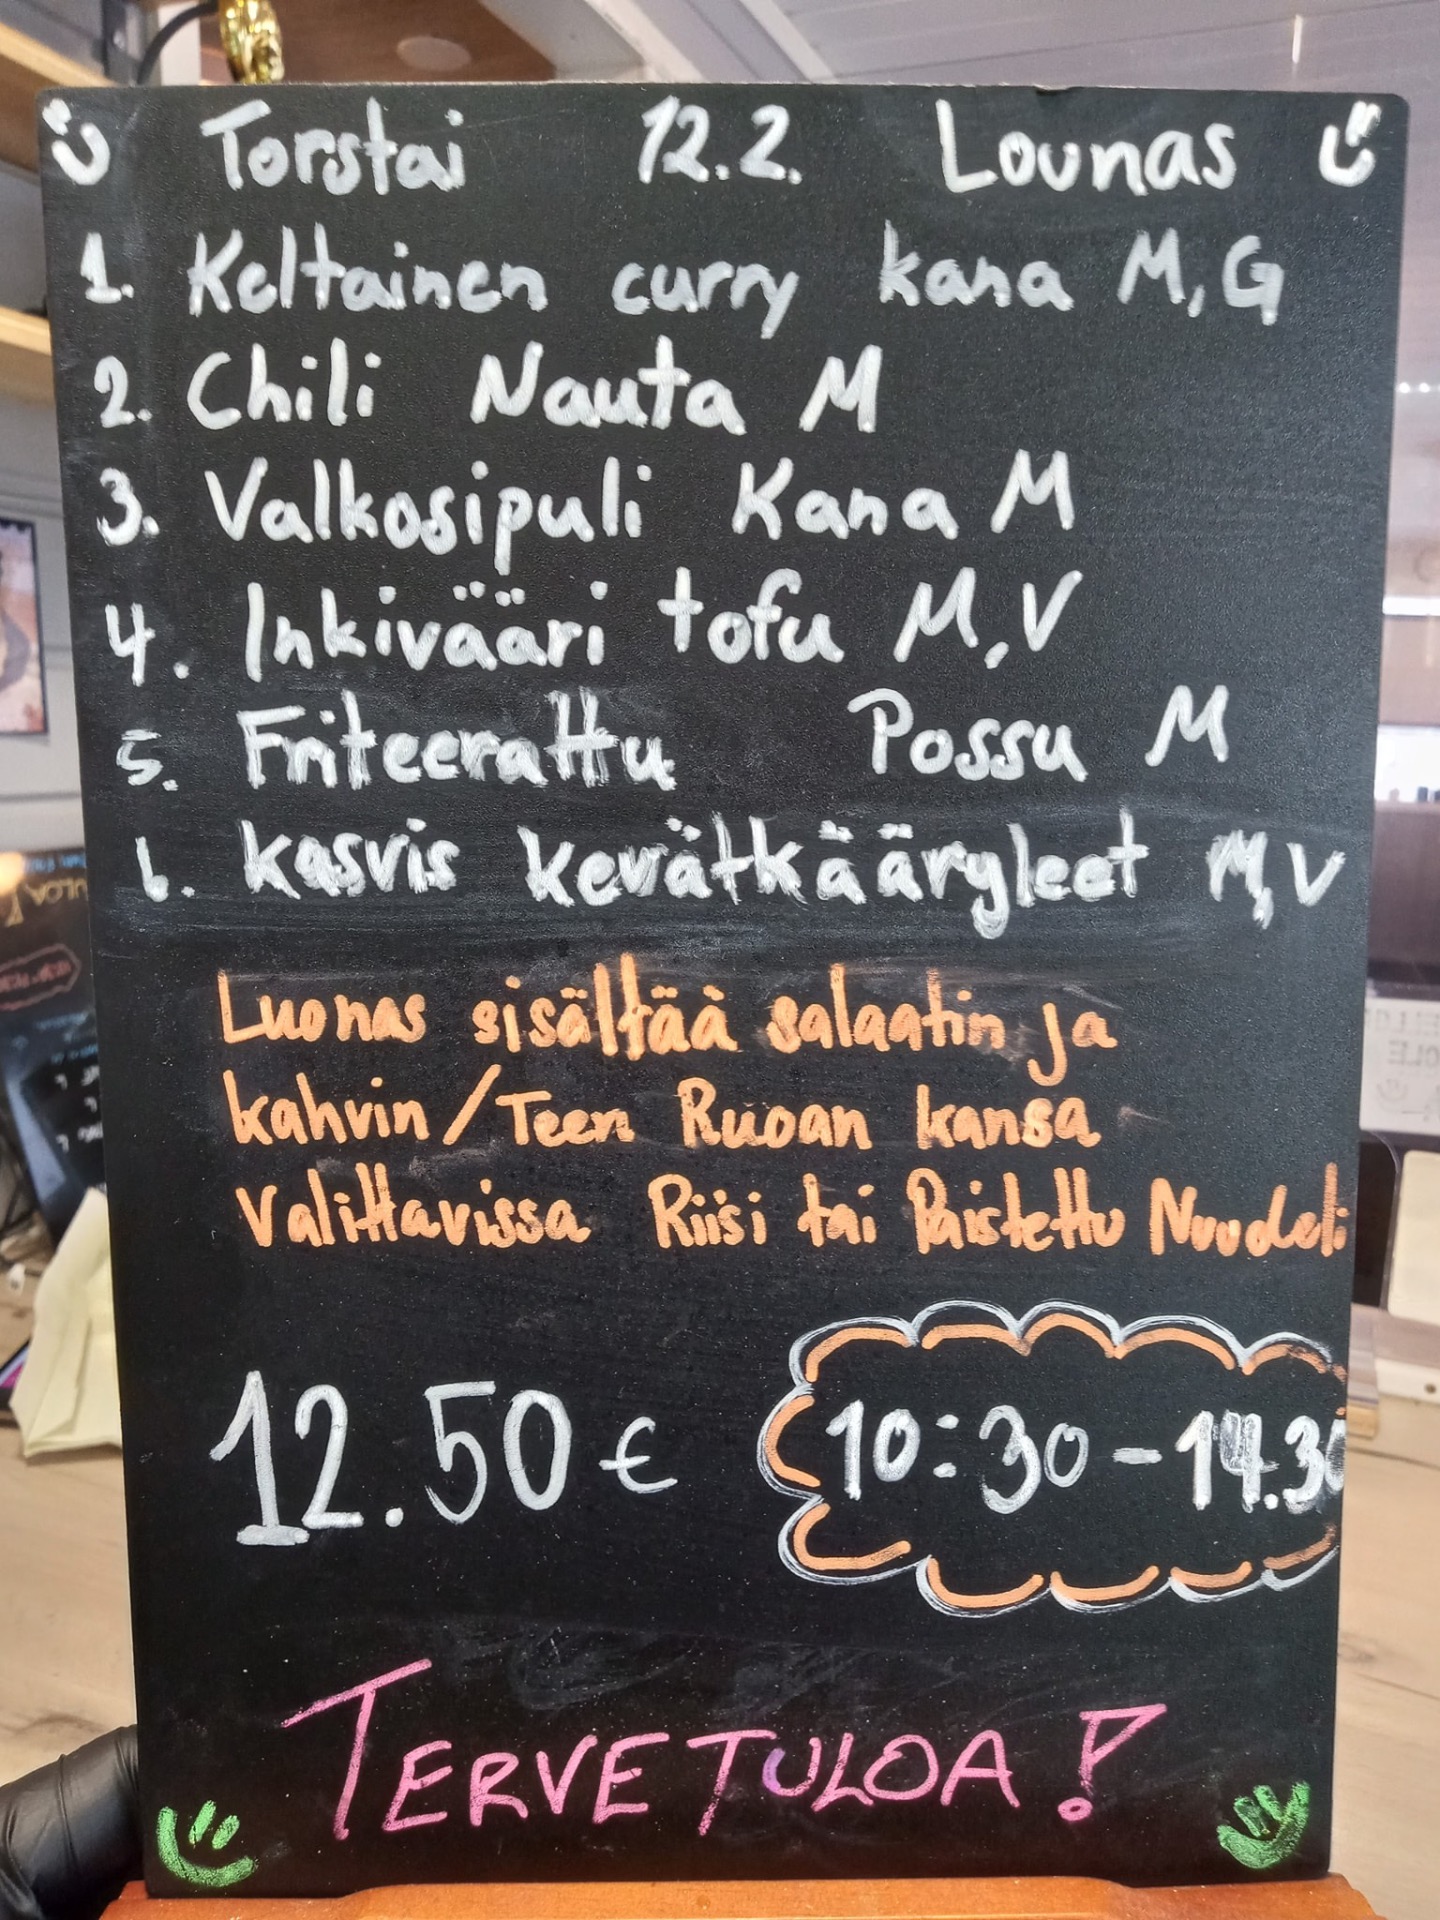 Torstai 12.2. Lounas
1. Keltainen curry kana M,G
2. Chili Nauta M
3. Valkosipuli Kana M
4. Inkivääri tofu M,V
5. Friteerattu Possu M
6. kasvis kevätkääryleet M,V
Luonas sisältää salaatin ja
kahvin/Teen Ruoan kansa
Valittavissa Riisi tai Paistettu Nuudeli
12.50 €
10:30-14.30
TERVETULOA!